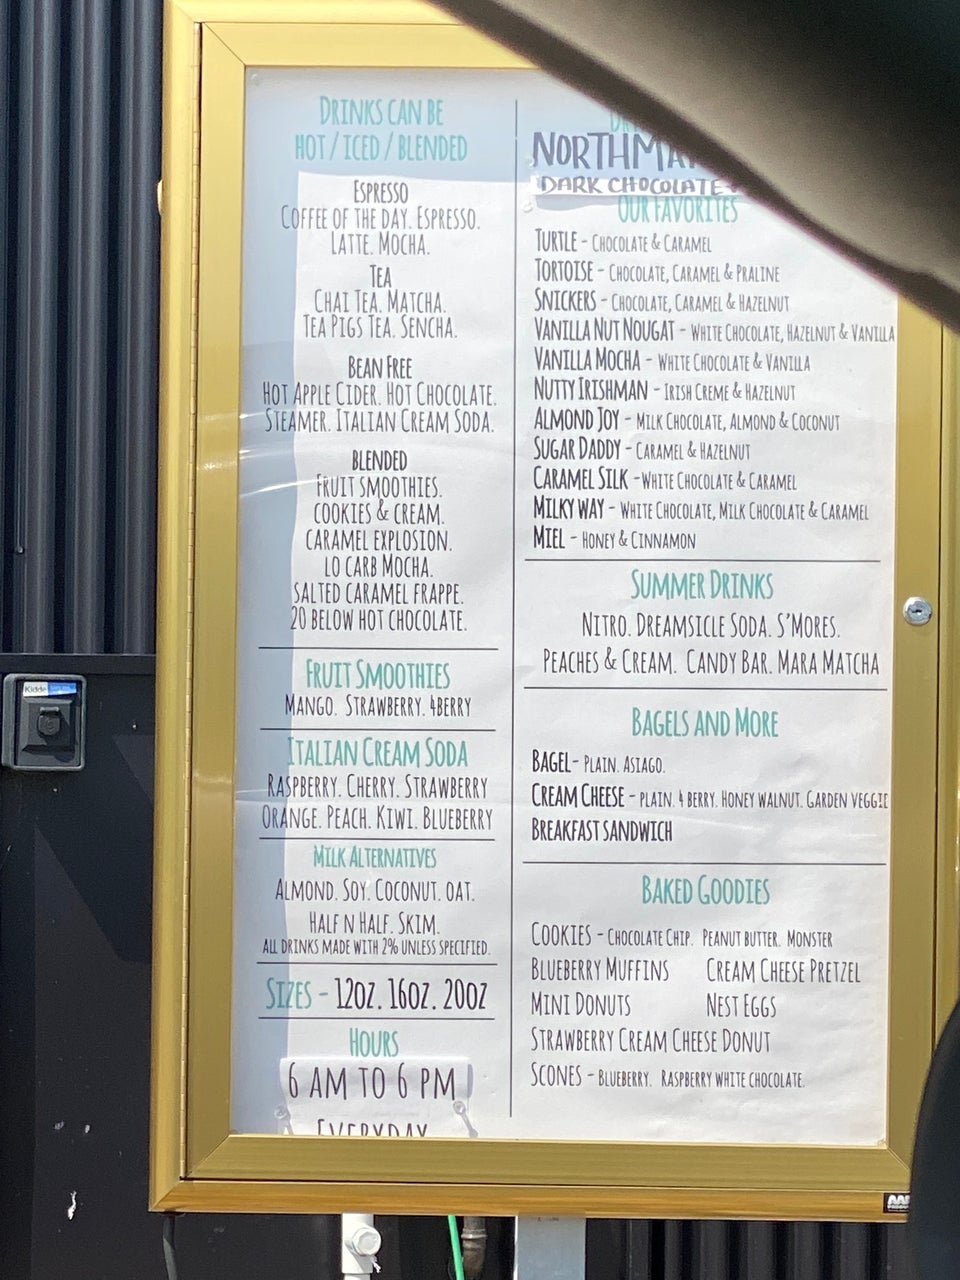 DRINKS CAN BE
HOT / ICED / BLENDED
ESPRESSO
COFFEE OF THE DAY. ESPRESSO.
LATTE. MOCHA.
TEA
CHAI TEA. MATCHA.
TEA PIGS TEA. SENCHA.
BEAN FREE
HOT APPLE CIDER. HOT CHOCOLATE.
STEAMER. ITALIAN CREAM SODA.
BLENDED
FRUIT SMOOTHIES.
COOKIES & CREAM.
CARAMEL EXPLOSION.
LO CARB MOCHA.
SALTED CARAMEL FRAPPE.
20 BELOW HOT CHOCOLATE.
FRUIT SMOOTHIES
MANGO. STRAWBERRY. 4BERRY
ITALIAN CREAM SODA
RASPBERRY. CHERRY. STRAWBERRY
ORANGE. PEACH. KIWI. BLUEBERRY
MILK ALTERNATIVES
ALMOND. SOY. COCONUT. OAT.
HALF N HALF. SKIM.
ALL DRINKS MADE WITH 2% UNLESS SPECIFIED.
SIZES - 12OZ. 16OZ. 20OZ
HOURS
6 AM TO 6 PM
EVERYDAY
DARK CHOCOLATE
OUR FAVORITES
TURTLE - CHOCOLATE & CARAMEL
TORTOISE - CHOCOLATE, CARAMEL & PRALINE
SNICKERS - CHOCOLATE, CARAMEL & HAZELNUT
VANILLA NUT NOUGAT - WHITE CHOCOLATE, HAZELNUT & VANILLA
VANILLA MOCHA - WHITE CHOCOLATE & VANILLA
NUTTY IRISHMAN - IRISH CREME & HAZELNUT
ALMOND JOY - MILK CHOCOLATE, ALMOND & COCONUT
SUGAR DADDY - CARAMEL & HAZELNUT
CARAMEL SILK -WHITE CHOCOLATE & CARAMEL
MILKY WAY - WHITE CHOCOLATE, MILK CHOCOLATE & CARAMEL
MIEL - HONEY & CINNAMON
SUMMER DRINKS
NITRO. DREAMSICLE SODA. S'MORES.
PEACHES & CREAM. CANDY BAR. MARA MATCHA
BAGELS AND MORE
BAGEL- PLAIN. ASIAGO.
CREAM CHEESE - PLAIN. 4 BERRY. HONEY WALNUT. GARDEN VEGGIE
BREAKFAST SANDWICH
BAKED GOODIES
COOKIES - CHOCOLATE CHIP. PEANUT BUTTER. MONSTER
BLUEBERRY MUFFINS CREAM CHEESE PRETZEL
MINI DONUTS NEST EGGS
STRAWBERRY CREAM CHEESE DONUT
SCONES - BLUEBERRY. RASPBERRY WHITE CHOCOLATE.
Kidde